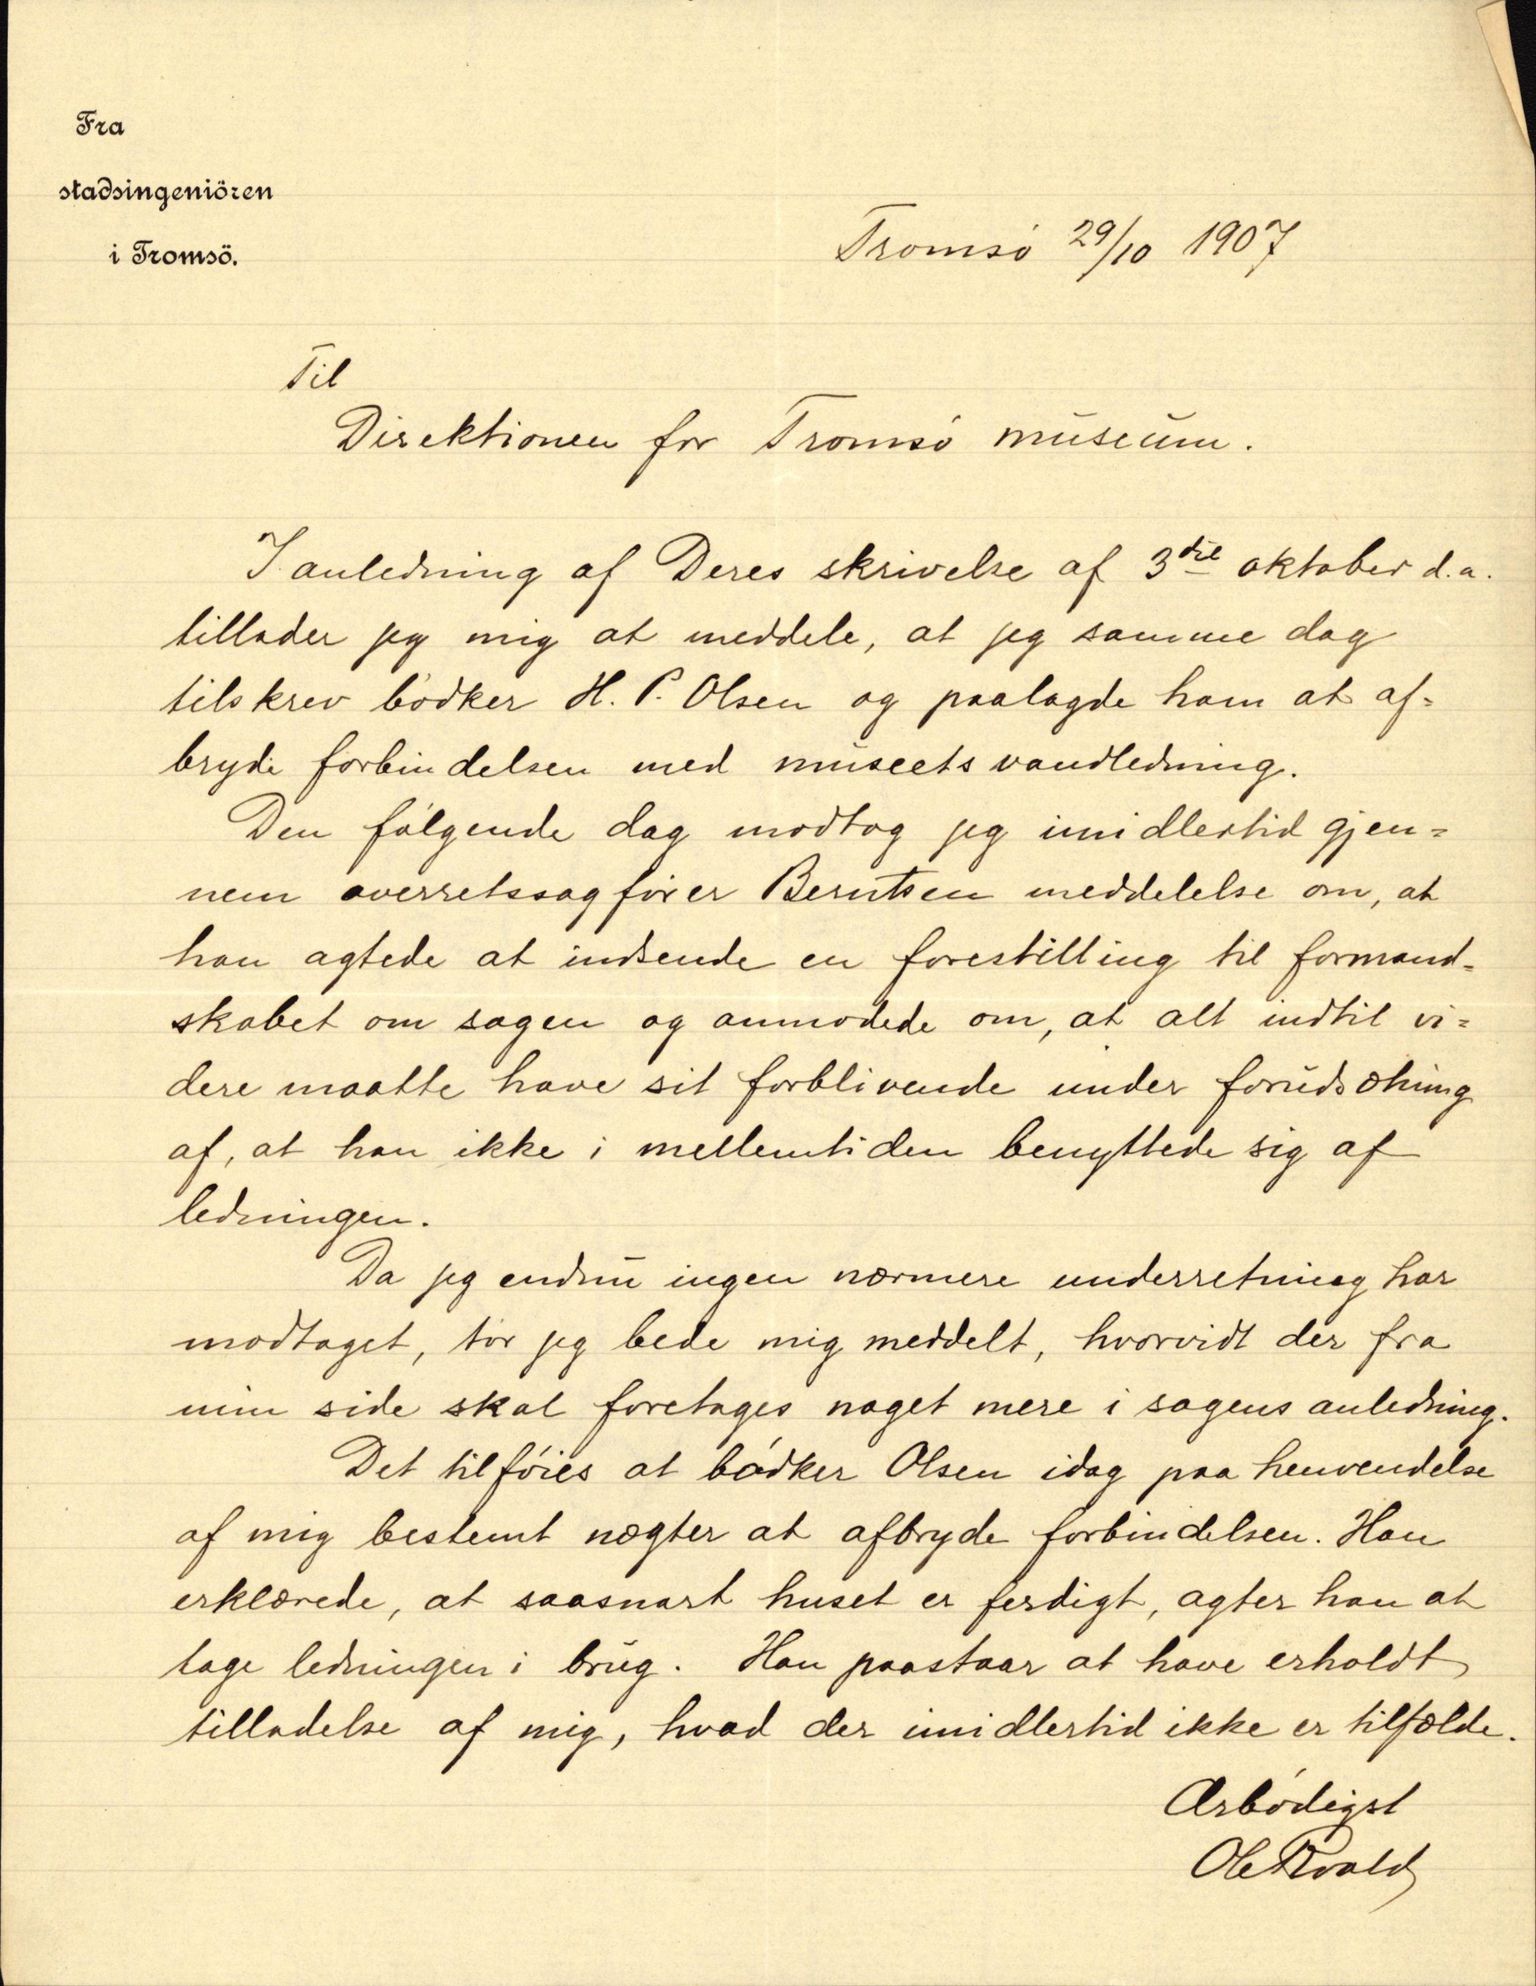 Fra
stadsingeniören
i Tromsö.
Tromsö 29/10 1907
Til
Direktionen for Tromsö museum.
I anledning af Deres skrivelse af 3die oktober d.a.
tillader jeg mig at meddele, at jeg samme dag
tilskrev bödker H. P. Olsen og paalagde ham at af=
bryde forbindelsen med museets vandledning.
Den fölgende dag modtog jeg imidlertid gjen=
nem overretssagförer Berntsen meddelelse om, at
han agtede at indsende en forestilling til formand=
skabet om sagen og anmodede om, at alt indtil vi=
dere maatte have sit forblivende under forudsætning
af, at han ikke i mellemtiden benyttede sig af
ledningen.
Da jeg endnu ingen nærmere underretning har
modtaget, tör jeg bede mig meddelt, hvorvidt der fra
min side skal foretages noget mere i sagens anledning.
Det tilföies at bödker Olsen idag paa henvendelse
af mig bestemt nægter at afbryde forbindelsen. Han
erklærede, at saasnart huset er ferdigt, agter han at
tage ledningen i brug. Han paastaar at have erholdt
tilladelse af mig, hvad der imidlertid ikke er tilfælde.
Ærbödigst
Ole